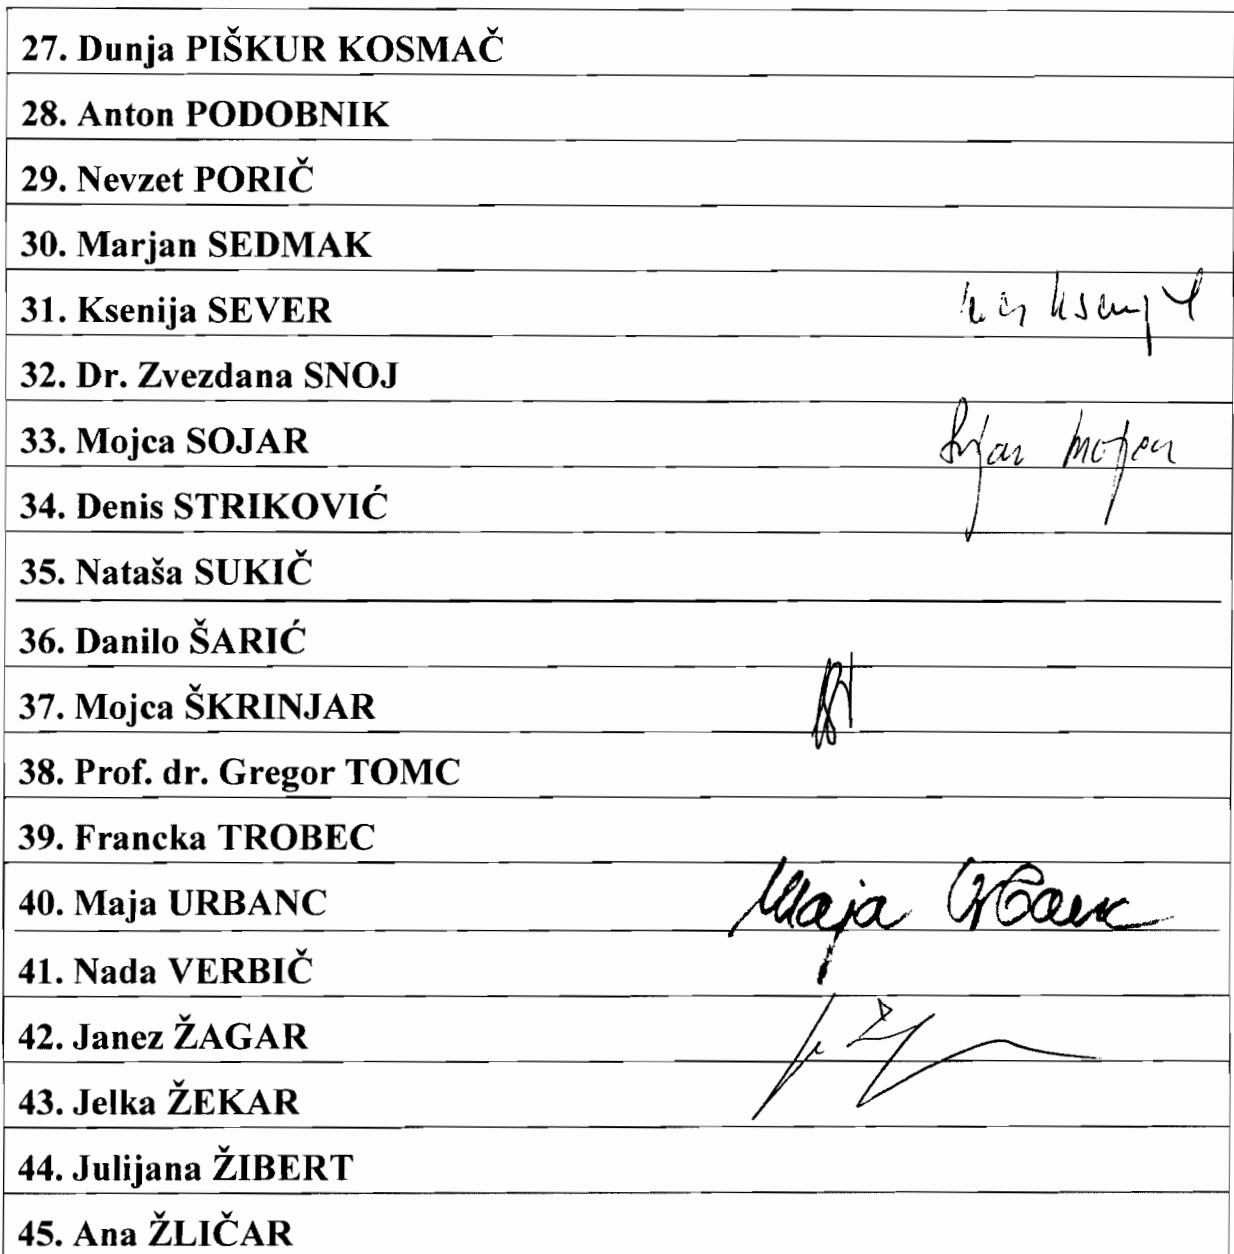 27. Dunja PIŠKUR KOSMAČ
28. Anton PODOBNIK
29. Nevzet PORIČ
30. Marjan SEDMAK
31. Ksenija SEVER
32. Dr. Zvezdana SNOJ
33. Mojca SOJAR Sojar Mojca
34. Denis STRIKOVIĆ
35. Nataša SUKIČ
36. Danilo ŠARIĆ
37. Mojca ŠKRINJAR
38. Prof. dr. Gregor TOMC
39. Francka TROBEC
40. Maja URBANC Maja Urbanc
41. Nada VERBIČ
42. Janez ŽAGAR
43. Jelka ŽEKAR
44. Julijana ŽIBERT
45. Ana ŽLIČAR